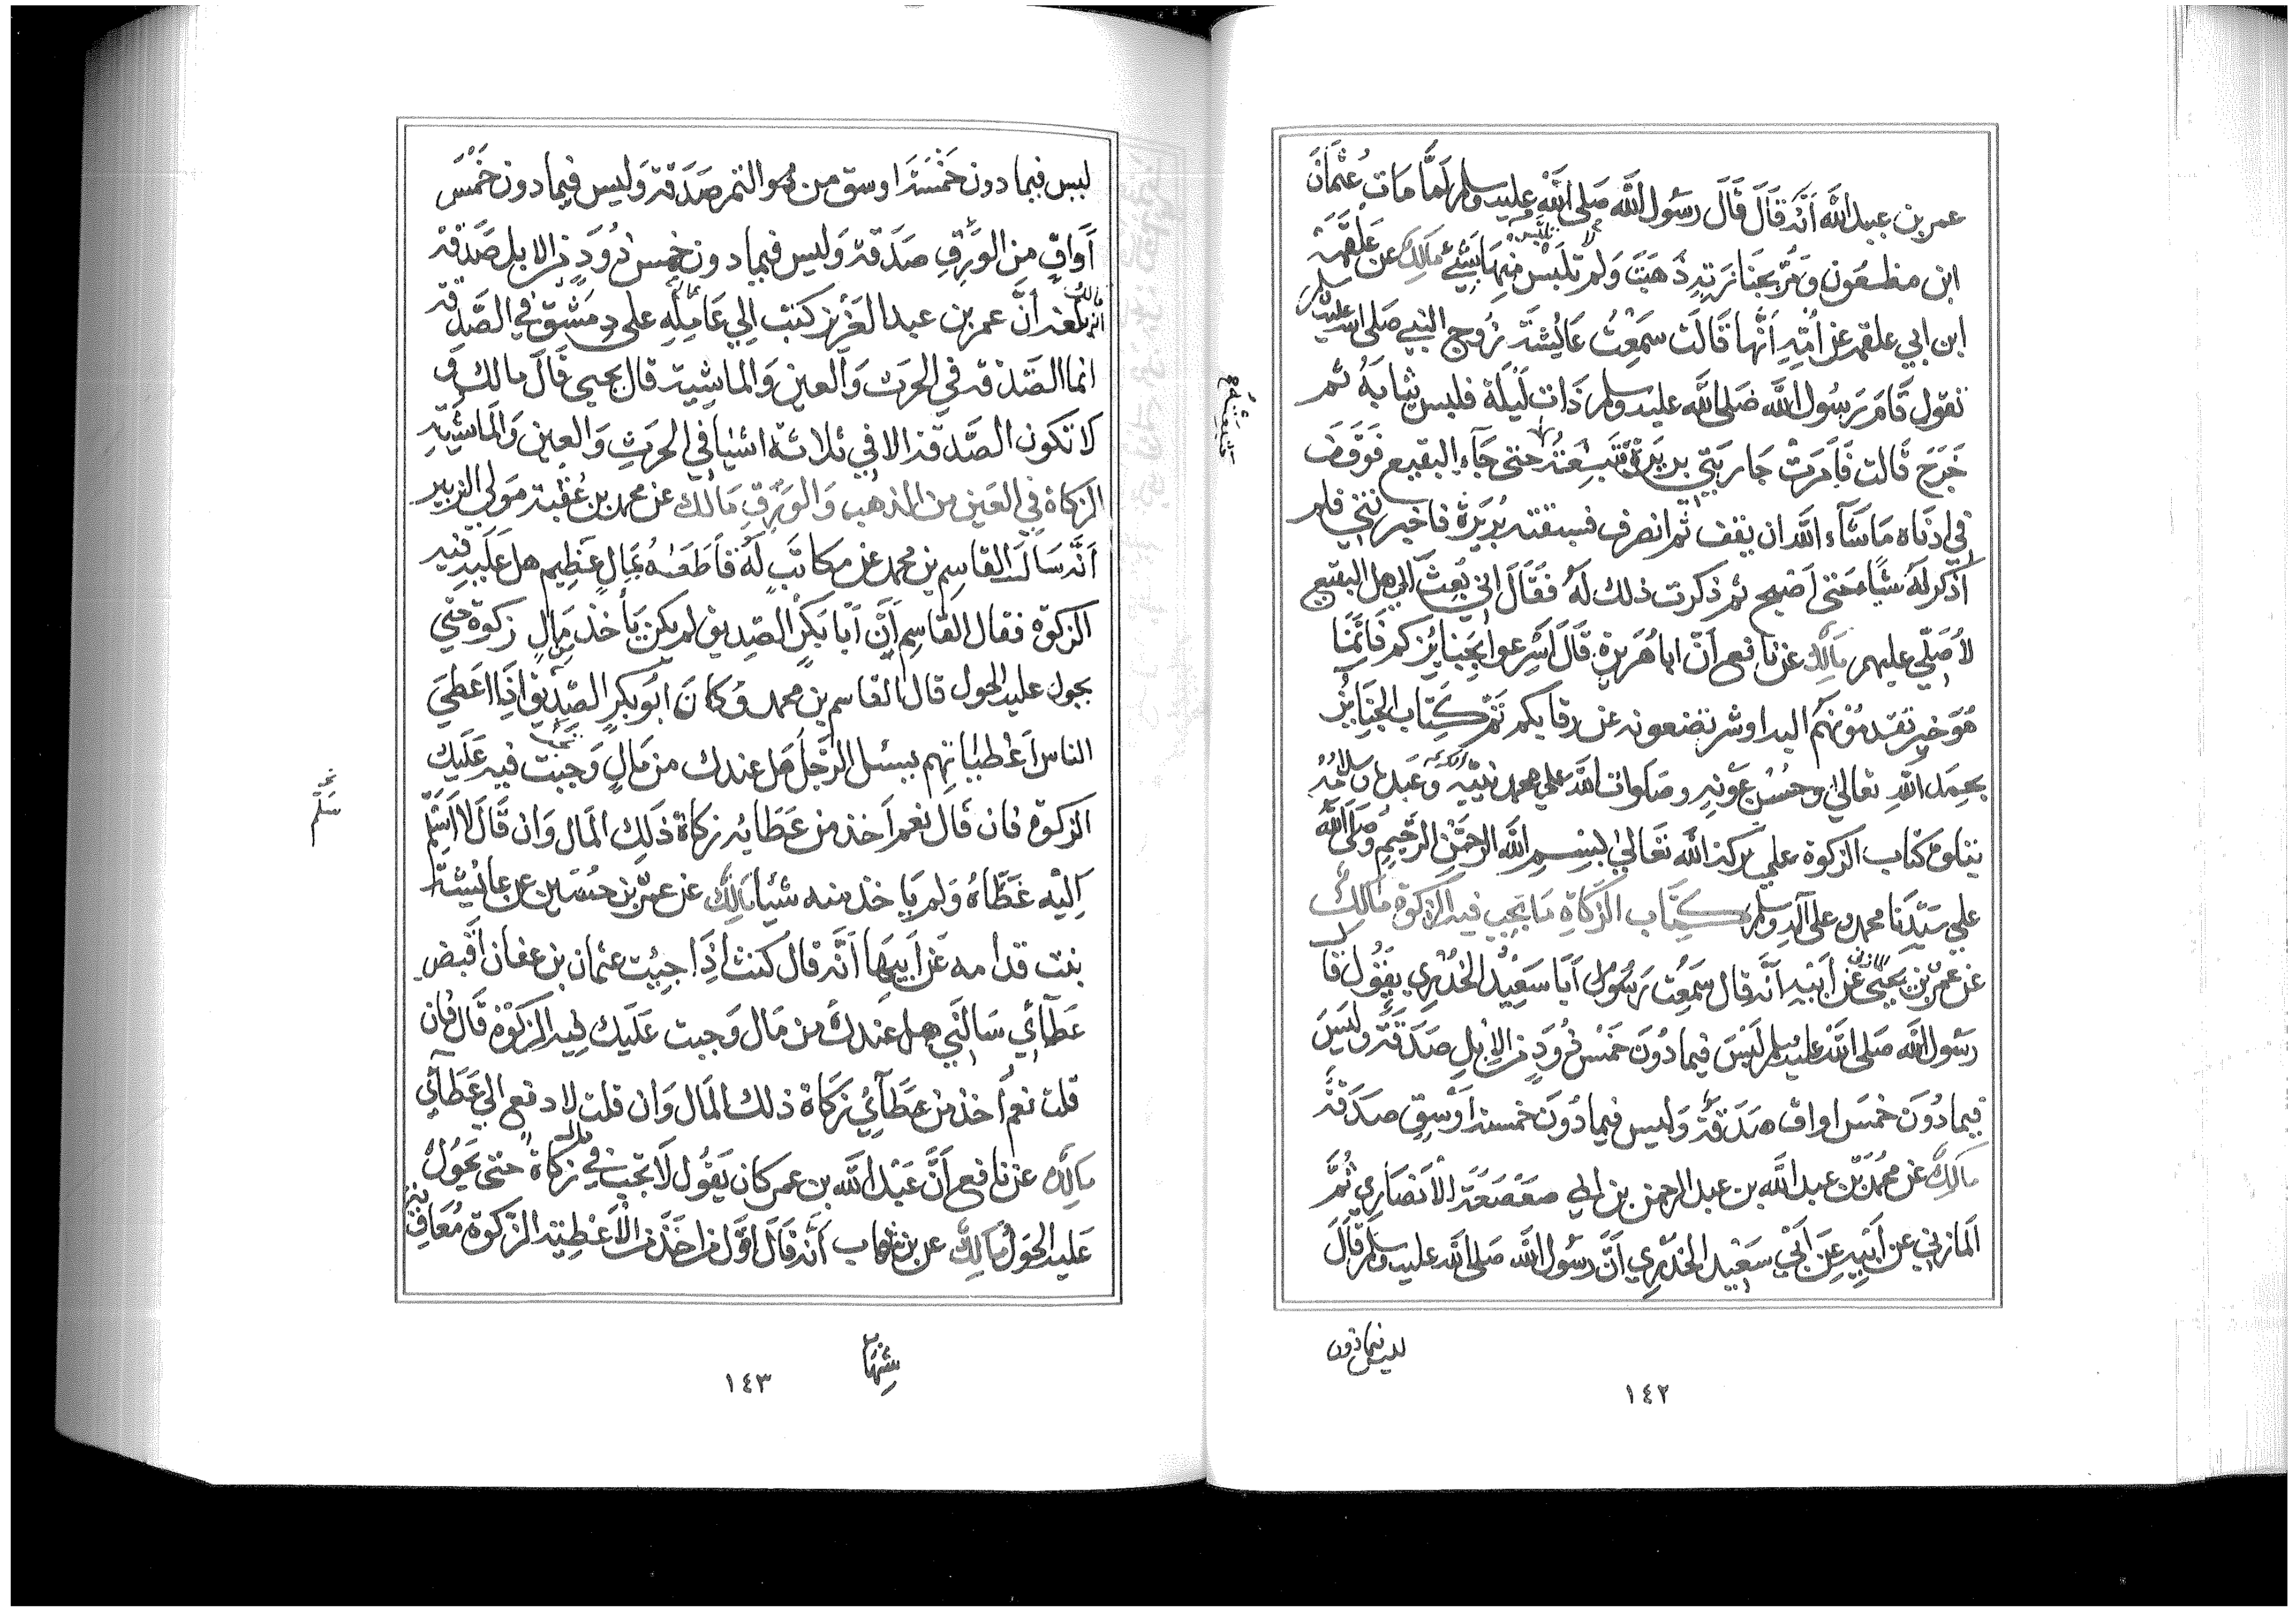 عمر بن عبيد الله أنه قال قال رسول الله صلى الله عليه وسلم لما مات عثمان
ابن مظعون ومر بجنازته ذهبت ولم تلبس منها بشيء مالك عن علقمة
ابن أبي علقمة عن أمه أنها قالت سمعت عائشة زوج النبي صلى الله عليه وسلم
تقول قام رسول الله صلى الله عليه وسلم ذات ليلة فلبس ثيابه ثم
خرج قالت فأمرت جاريتي بريرة تتبعه فتبعته حتى جاء البقيع فوقف
في ادناه ما شاء الله ان يقف ثم انصرف فسبقته بريرة فاخبرتني فلم
أذكر له شيأ حتى أصبح ثم ذكرت ذلك له فقال اني بعثت إلى اهل البقيع
لأصلي عليهم مالك عن نافع أن ابا هريرة قال أسرعوا بجنائزكم فإنما
هو خير تقدمونهم اليه او شر تضعونه عن رقابكم تم كتاب الجنائز
بحمد الله تعالى وحسن عونه وصلوات الله على محمد نبيه وعبده وسلامه
يتلوه كتاب الزكوة على بركة الله تعالى بسم الله الرحمن الرحيم وصلى الله
على سيدنا محمد وعلى آله وسلم كتاب الزكاة ما تجب فيه الزكوة مالك
عن عمرو بن يحيى المازني عن أبيه أنه قال سمعت أبا سعيد الخدري يقول قال
رسول الله صلى الله عليه وسلم ليس فيما دون خمس ذود من الإبل صدقة وليس
فيما دون خمس اواق صدقة وليس فيما دون خمسة أوسق صدقة
مالك عن محمد بن عبد الله بن عبد الرحمن بن ابي صعصعة الأنصاري ثم
المازني عن أبيه عن أبي سعيد الخدري أن رسول الله صلى الله عليه وسلم قال
ليس فيما دون
١٤٢
ليس فيما دون خمسة اوسق من التمر صدقة وليس فيما دون خمس
أواق من الورق صدقة وليس فيما دون خمس ذود من الابل صدقة
مالك أنه بلغه أن عمر بن عبد العزيز كتب إلى عامله على دمشق في الصدقة
انما الصدقة في الحرث والعين والماشية قال يحيى قال مالك و
لا تكون الصدقة الا في ثلاثة اشياء في الحرث والعين والماشية
الزكاة في العين من الذهب والورق مالك عن محمد بن عقبة مولى الزبير
أنه سأل القاسم بن محمد عن مكاتب له قاطعه بمال عظيم هل عليه فيه
الزكوة فقال القاسم إن أبا بكر الصديق لم يكن يأخذ من مال زكوة حتى
يحول عليه الحول قال القاسم بن محمد وكان أبو بكر الصديق إذا اعطى
الناس أعطياتهم يسئل الرجل هل عندك من مال وجبت فيه عليك
الزكوة فان قال نعم أخذ من عطائه زكاة ذلك المال وان قال لا أسلم
إليه عطاه ولم يأخذ منه شيئا مالك عن عمر بن حسين عن عائشة
بنت قدامه عن أبيها أنه قال كنت إذا جئت عثمان بن عفان أقبض
عطائي سالني هل عندك من مال وجبت عليك فيه الزكوة قال فإن
قلت نعم أخذ من عطائي زكاة ذلك المال وان قلت لا دفع الي عطائي
مالك عن نافع أن عبد الله بن عمر كان يقول لا تجب في مال زكاة حتى يحول
عليه الحول مالك عن بن شهاب أنه قال أول من اخذ من الأعطية الزكوة معاوية
سلم
شهاب
١٤٣